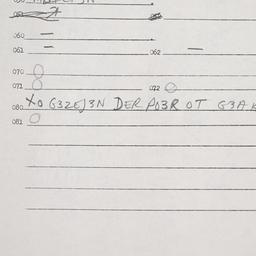 060 —
061 — 062 —
070 0
071 0 072 0
080 XO G3ZEJ3N DER PO3R OT G3A
081 0